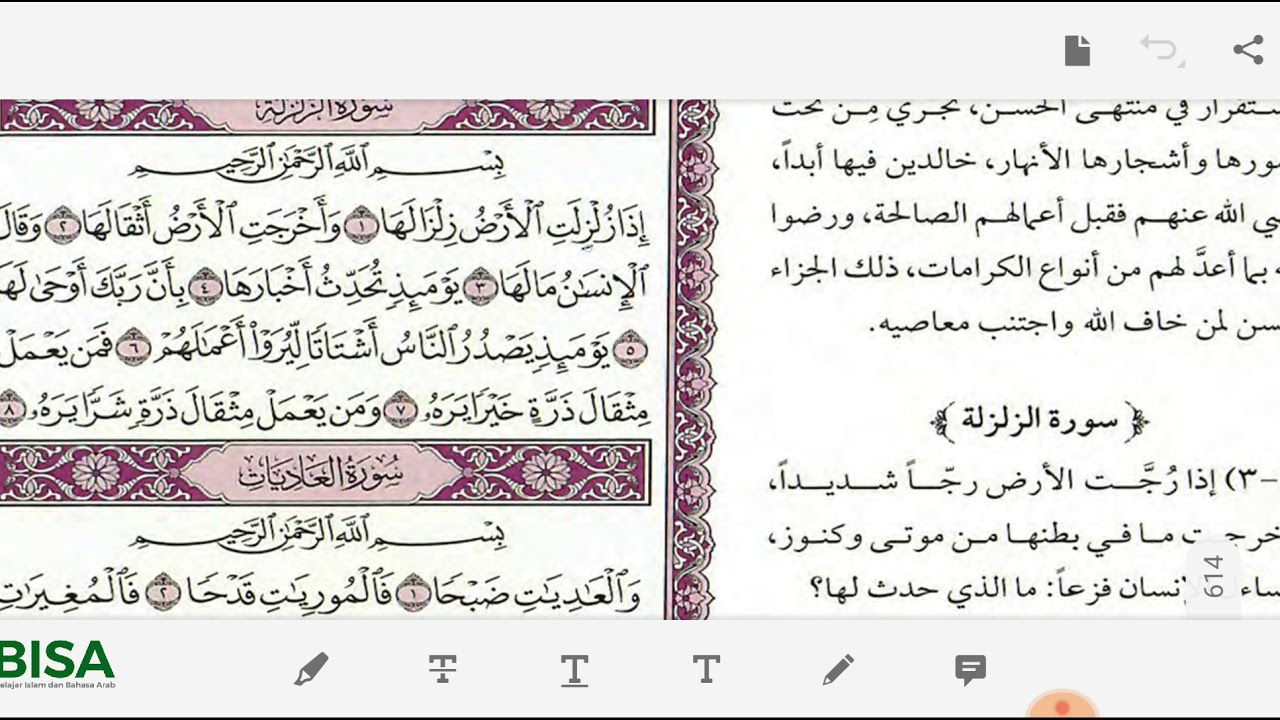 سُورَةُ الزَّلْزَلَةِ
بِسْمِ ٱللَّهِ ٱلرَّحْمَٰنِ ٱلرَّحِيمِ
إِذَا زُلْزِلَتِ ٱلْأَرْضُ زِلْزَالَهَا ١ وَأَخْرَجَتِ ٱلْأَرْضُ أَثْقَالَهَا ٢ وَقَالَ
ٱلْإِنسَٰنُ مَا لَهَا ٣ يَوْمَئِذٍ تُحَدِّثُ أَخْبَارَهَا ٤ بِأَنَّ رَبَّكَ أَوْحَىٰ لَهَا
٥ يَوْمَئِذٍ يَصْدُرُ ٱلنَّاسُ أَشْتَاتًا لِّيُرَوْا۟ أَعْمَٰلَهُمْ ٦ فَمَن يَعْمَلْ
مِثْقَالَ ذَرَّةٍ خَيْرًا يَرَهُۥ ٧ وَمَن يَعْمَلْ مِثْقَالَ ذَرَّةٍ شَرًّا يَرَهُۥ ٨
سُورَةُ العَادِيَاتِ
بِسْمِ ٱللَّهِ ٱلرَّحْمَٰنِ ٱلرَّحِيمِ
وَٱلْعَٰدِيَٰتِ ضَبْحًا ١ فَٱلْمُورِيَٰتِ قَدْحًا ٢ فَٱلْمُغِيرَٰتِ
في منتهى الحسن، تجري مِن تحت
وأشجارها الأنهار، خالدين فيها أبداً،
الله عنهم فقبل أعمالهم الصالحة، ورضوا
بما أعدَّ لهم من أنواع الكرامات، ذلك الجزاء
لمن خاف الله واجتنب معاصيه.
﴿ سورة الزلزلة ﴾
-٣) إذا رُجَّت الأرض رجّاً شديداً،
ما في بطنها من موتى وكنوز،
الإنسان فزعاً: ما الذي حدث لها؟
614
BISA
elajar Islam dan Bahasa Arab
T
T
T